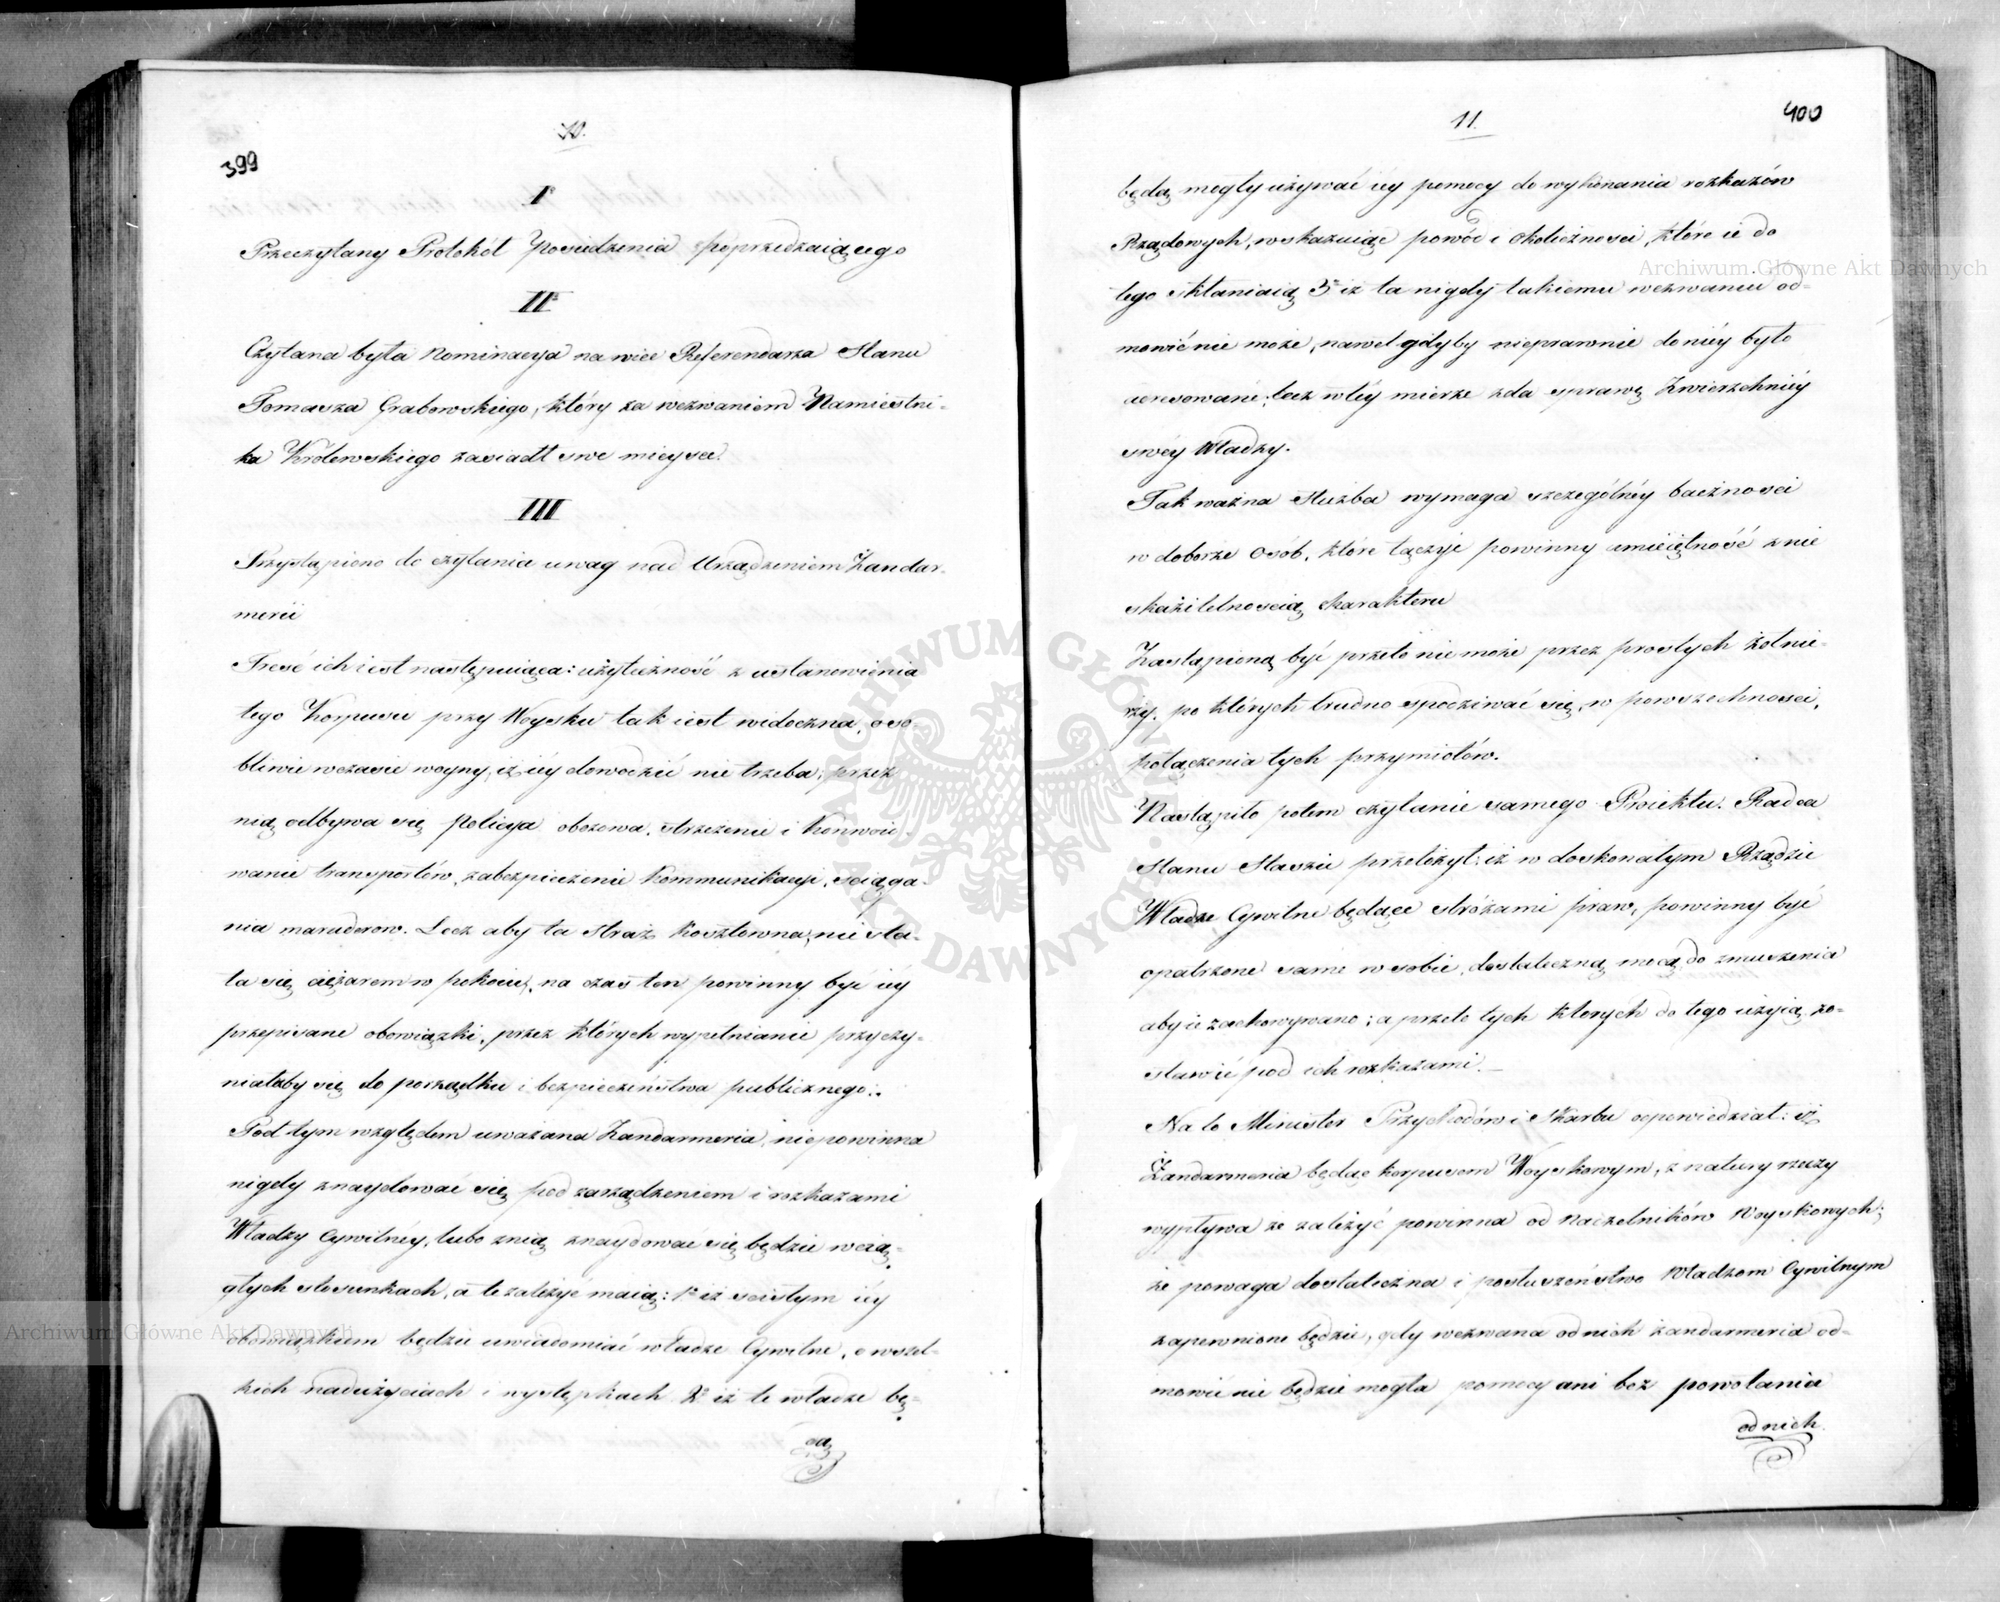 10.
399
I°
Przeczytany Protokół Posiedzenia poprzedzaiącego
II°
Czytana była Nominacya na wice Referendarza Stanu
Tomasza Grabowskiego, który za wezwaniem Namiestni-
ka Królewskiego zasiadł swe mieysce.
III
Przystąpiono do czytania uwag nad Urządzeniem Żandar-
merii
Treść ich iest następuiąca: użyteczność z ustanowienia
tego Korpusu przy Woysku tak iest widoczna, oso-
bliwie wczasie woyny, iż iéy dowodzić nie trzeba; przez
nią odbywa się policya obozowa, strzeżenie i konwoio-
wanie transportów, zabezpieczenie Kommunikacyi, ściąga-
nia maruderow. Lecz aby ta straż kosztowna, nie sta-
ła się ciężarem w pokoiu, na czas ten powinny być iéy
przepisane obowiązki, przez których wypełnianie przyczy-
niałaby się do porządku i bezpieczeństwa publicznego.
Pod tym względem uważana Żandarmeria, niepowinna
nigdy znaydować się pod zarządzeniem i rozkazami
Władzy Cywilnéy, lubo znią znaydować się będzie wcią-
głych stosunkach, a te zależyć maią: 1° iż scisłym iéy
obowiązkiem będzie uwiadomiać władze Cywilne, o wszel-
kich nadużyciach i występkach. 2° iż te władze bę-
dą
11.
400
będą mogły używać iéy pomocy do wykonania rozkazów
Rządowych, wskazuiąc powód i okoliczności, które ie do
tego skłaniaią 3° iż ta nigdy takiemu wezwaniu od-
mówić nie może, nawet gdyby nieprawnie do niéy było
adresowané; lecz w téy mierze zda sprawę Zwierzchniéy
swéy Władzy.
Tak ważna służba wymaga szczególnéy baczności
w doborze osób, które łączyć powinny umieiętność z nie
skażitelnością charakteru
Zastąpioną być przeto nie może przez prostych żołnie-
rzy, po których trudno spodziwać się, w powszechności,
połączenia tych przymiotów.
Nastąpiło potem czytanie samego Proiektu. Radca
Stanu Staszic przełożył: iż w doskonałym Rządzie
Władze Cywilne będące stróżami praw, powinny być
opatrzone same w sobie, dostateczną mocą do zmuszenia
aby ie zachowywano; a przeto tych których do tego użyią zo-
stawić pod ich rozkazami.
Na to Minister Przychodów i Skarbu odpowiedział: iż
Żandarmeria będąc korpusem Woyskowym, z natury rzeczy
wypływa że zależyć powinna od Naczelników Woyskowych;
że powaga dostateczna i posłuszeństwo Władzom Cywilnym
zapewnione będzie, gdy wezwana od nich żandarmeria od-
mówić nie będzie mogła pomocy ani bez powołania
od nich.
Archiwum Główne Akt Dawnych
Archiwum Główne Akt Dawnych
ARCHIWUM GŁÓWNE AKT DAWNYCH